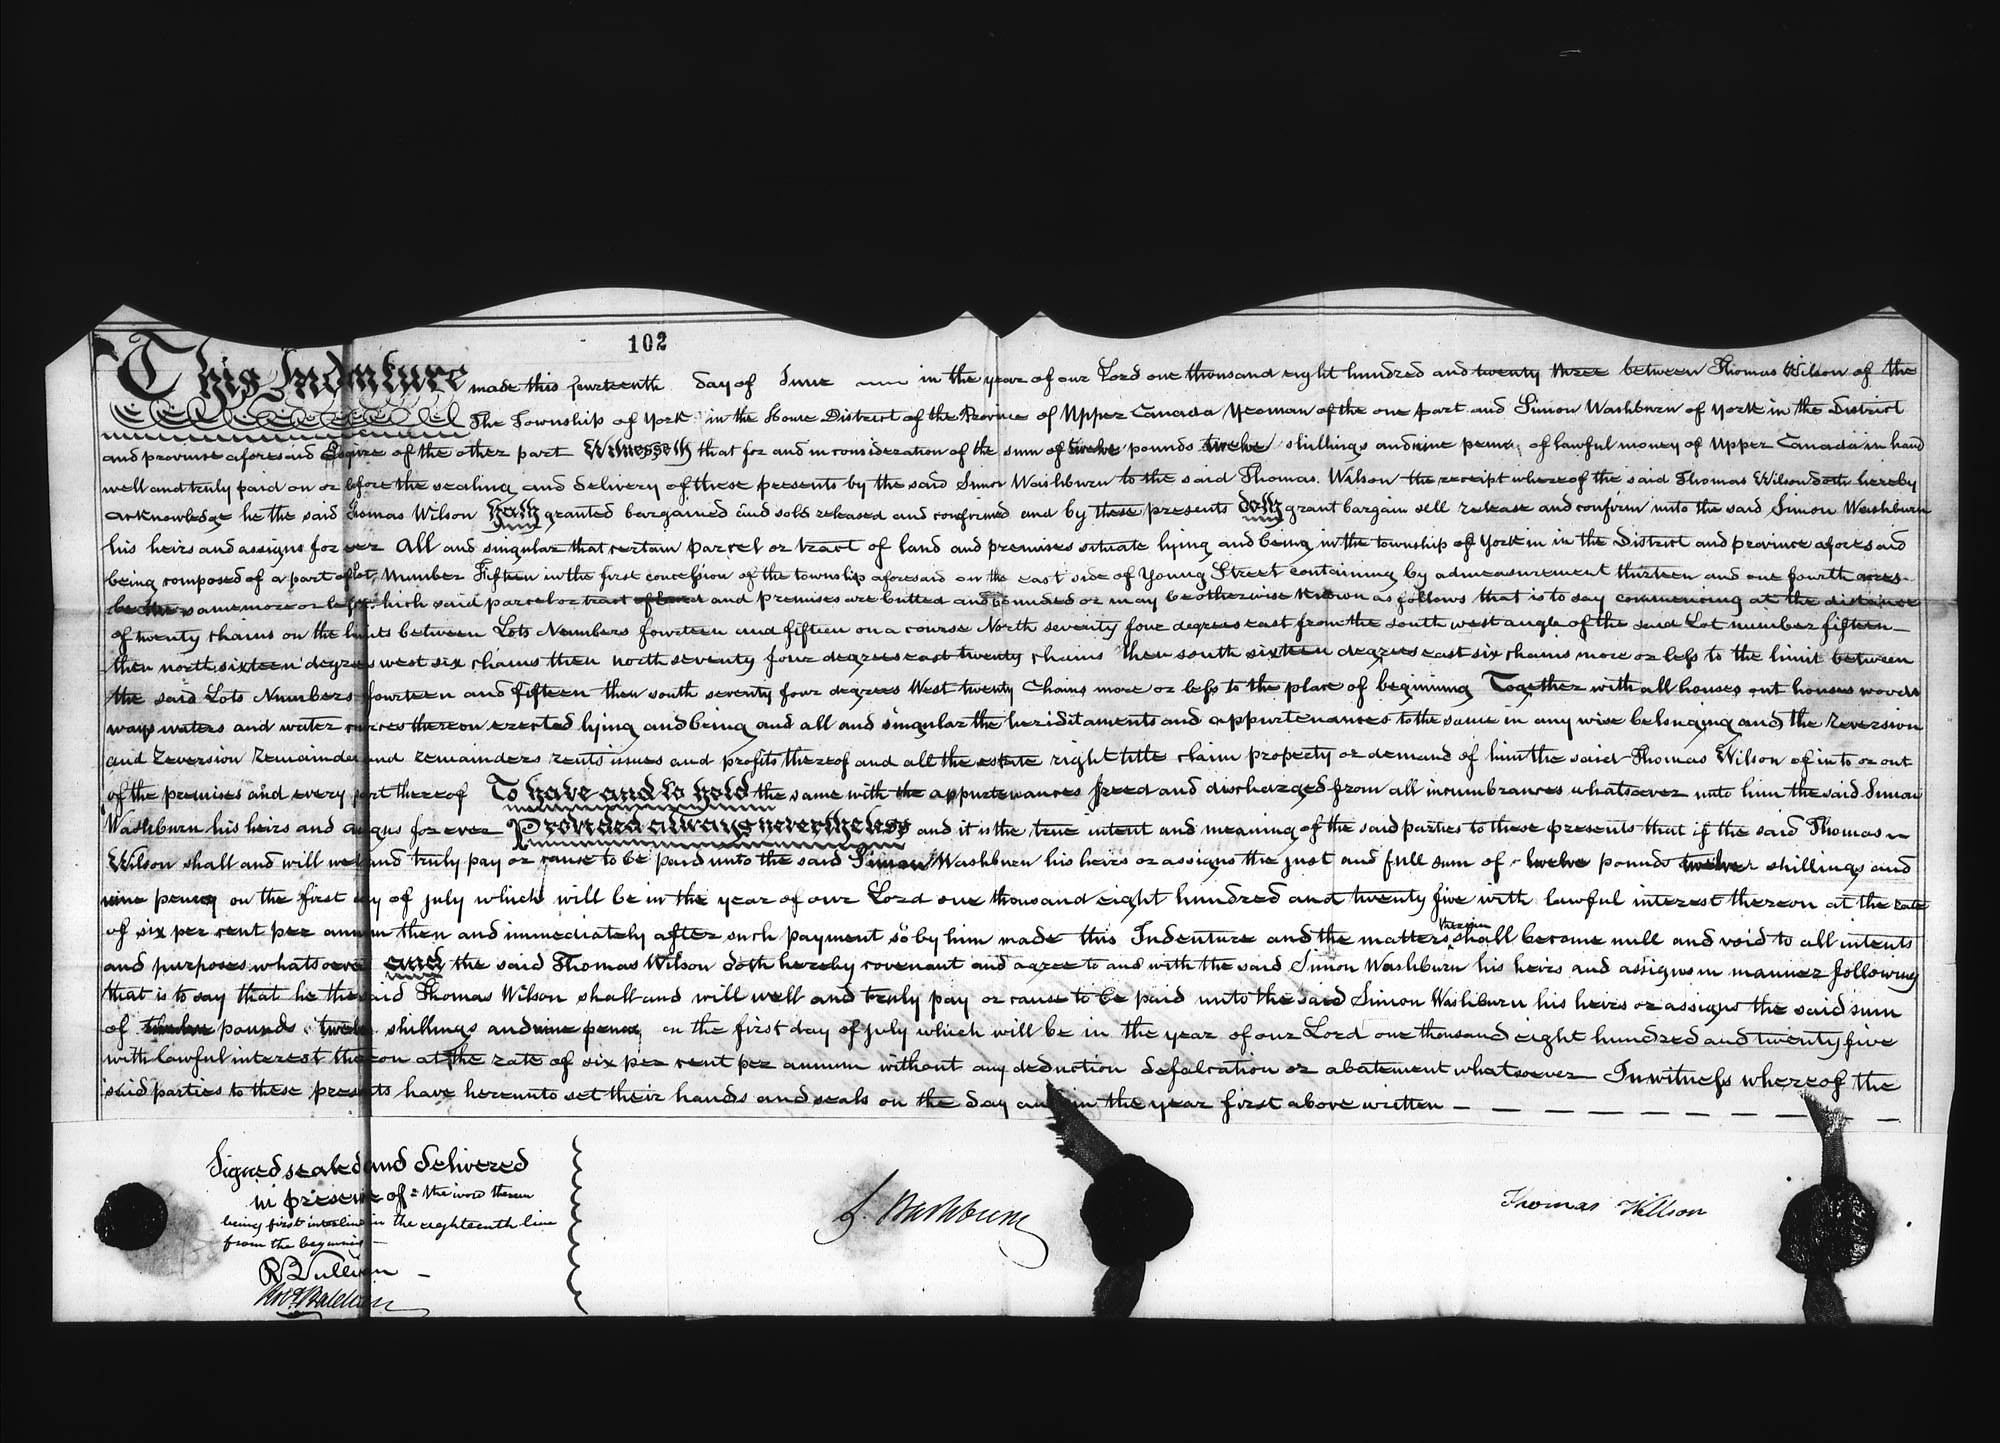 102
This Indenture made this fourteenth day of June in the year of our Lord one thousand eight hundred and twenty three between Thomas Wilson of the
The Township of York in the Home District of the Province of Upper Canada Yeoman of the one part and Simon Washburn of York in the District
and province aforesaid Esquire of the other part Witnesseth that for and in consideration of the sum of twelve pounds twelve shillings and nine pence of lawful money of Upper Canada in hand
well and truly paid on or before the sealing and delivery of these presents by the said Simon Washburn to the said Thomas Wilson the receipt whereof the said Thomas Wilson doth hereby
acknowledge he the said Thomas Wilson Hath granted bargained and sold released and confirmed and by these presents doth grant bargain sell release and confirm unto the said Simon Washburn
his heirs and assigns for ever All and singular that certain parcel or tract of land and premises situate lying and being in the township of York in in the District and province aforesaid
being composed of a part of Lot Number Fifteen in the first concession of the township aforesaid on the east side of Young Street containing by admeasurement thirteen and one fourth acres
be the same more or less which said parcel or tract of land and premises are butted and bounded or may be otherwise known as follows that is to say commencing at the distance
of twenty chains on the limits between Lots Numbers fourteen and fifteen on a course North seventy four degrees east from the south west angle of the said Lot number fifteen
then north sixteen degrees west six chains then north seventy four degrees east twenty chains then south sixteen degrees east six chains more or less to the limit between
the said Lots Numbers fourteen and fifteen then south seventy four degrees West twenty Chains more or less to the place of begining Together with all houses out houses woods
ways waters and water cources thereon erected lying and being and all and singular the heriditaments and appurtenances to the same in any wise belonging and the reversion
and reversion remainder and remainders rents issues and profits thereof and all the estate right title claim property or demand of him the said Thomas Wilson of in to or out
of the premises and every part thereof To have and to hold the same with the appurtenances freed and discharged from all incumbrances whatsoever unto him the said Simon
Washburn his heirs and assigns for ever Provided always nevertheless and it is the true intent and meaning of the said parties to these presents that if the said Thomas
Wilson shall and will well and truly pay or cause to be paid unto the said Simon Washburn his heirs or assigns the just and full sum of twelve pounds twelve shillings and
nine pence on the first day of july which will be in the year of our Lord one thousand eight hundred and twenty five with lawful interest thereon at the rate
of six per cent per annum then and immediately after such payment so by him made this Indenture and the matters therein shall become null and void to all intents
and purposes whatsoever and the said Thomas Wilson doth hereby covenant and agree to and with the said Simon Washburn his heirs and assigns in manner following
that is to say that he the said Thomas Wilson shall and will well and truly pay or cause to be paid unto the said Simon Washburn his heirs or assigns the said sum
of twelve pounds twelve shillings and nine pence on the first day of july which will be in the year of our Lord one thousand eight hundred and twenty five
with lawful interest thereon at the rate of six per cent per annum without any deduction defalcation or abatement whatsoever In witness whereof the
said parties to these presents have hereunto set their hands and seals on the day and in the year first above written
Signed sealed and delivered
in presence of = the word therein
being first interlined in the eighteenth line
from the begining
S. Washburn
Thomas Willson
R B Sullivan
Robt Baldwin